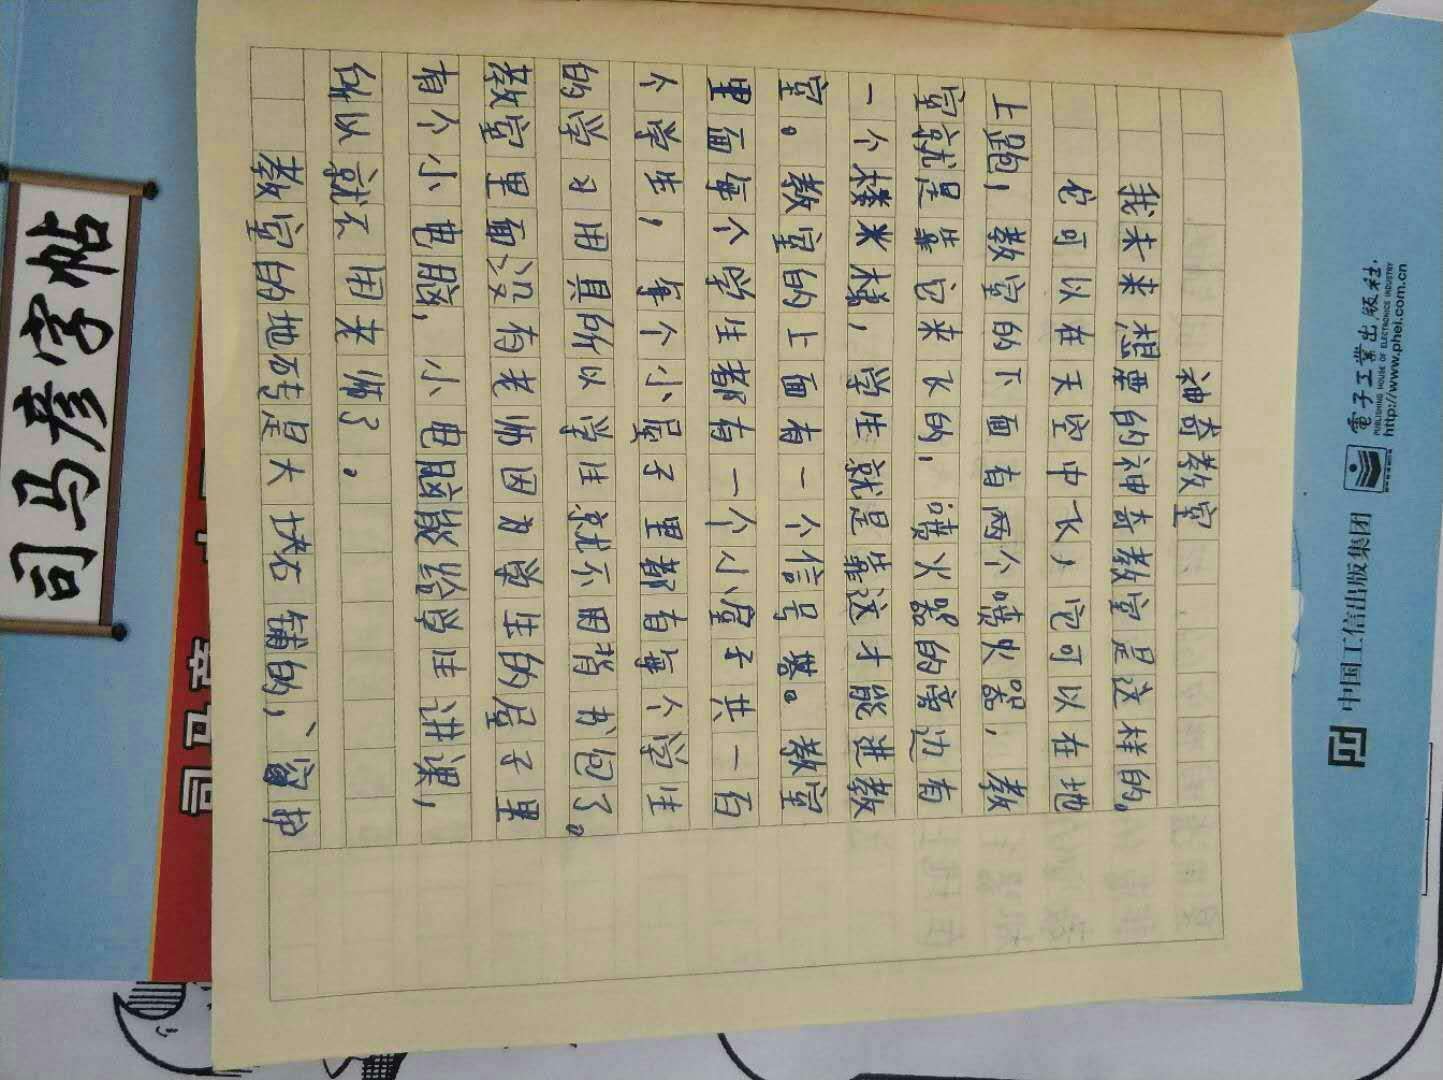 神奇教室
我未来想要的神奇教室是这样的。
它可以在天空中飞，它可以在地
上跑，教室的下面有两个喷火器，教
室就是靠它来飞的，喷火器的旁边有
一个楼米梯，学生就是靠这才能进教
室。教室的上面有一个信号塔。教室
里面每个学生都有一个小屋子共一百
个学生，每个小屋子里都有每个学生
的学习用具所以学生就不用背书包了。
教室里面没有老师因为学生的屋子里
有个小电脑，小电脑能给学生讲课，
所以就不用老师了。
教室的地砖是大块石铺的，窗护
司马彦字帖
司马彦
電子工業出版社.
PUBLISHING HOUSE OF ELECTRONICS INDUSTRY
http://www.phei.com.cn
中国工信出版集团